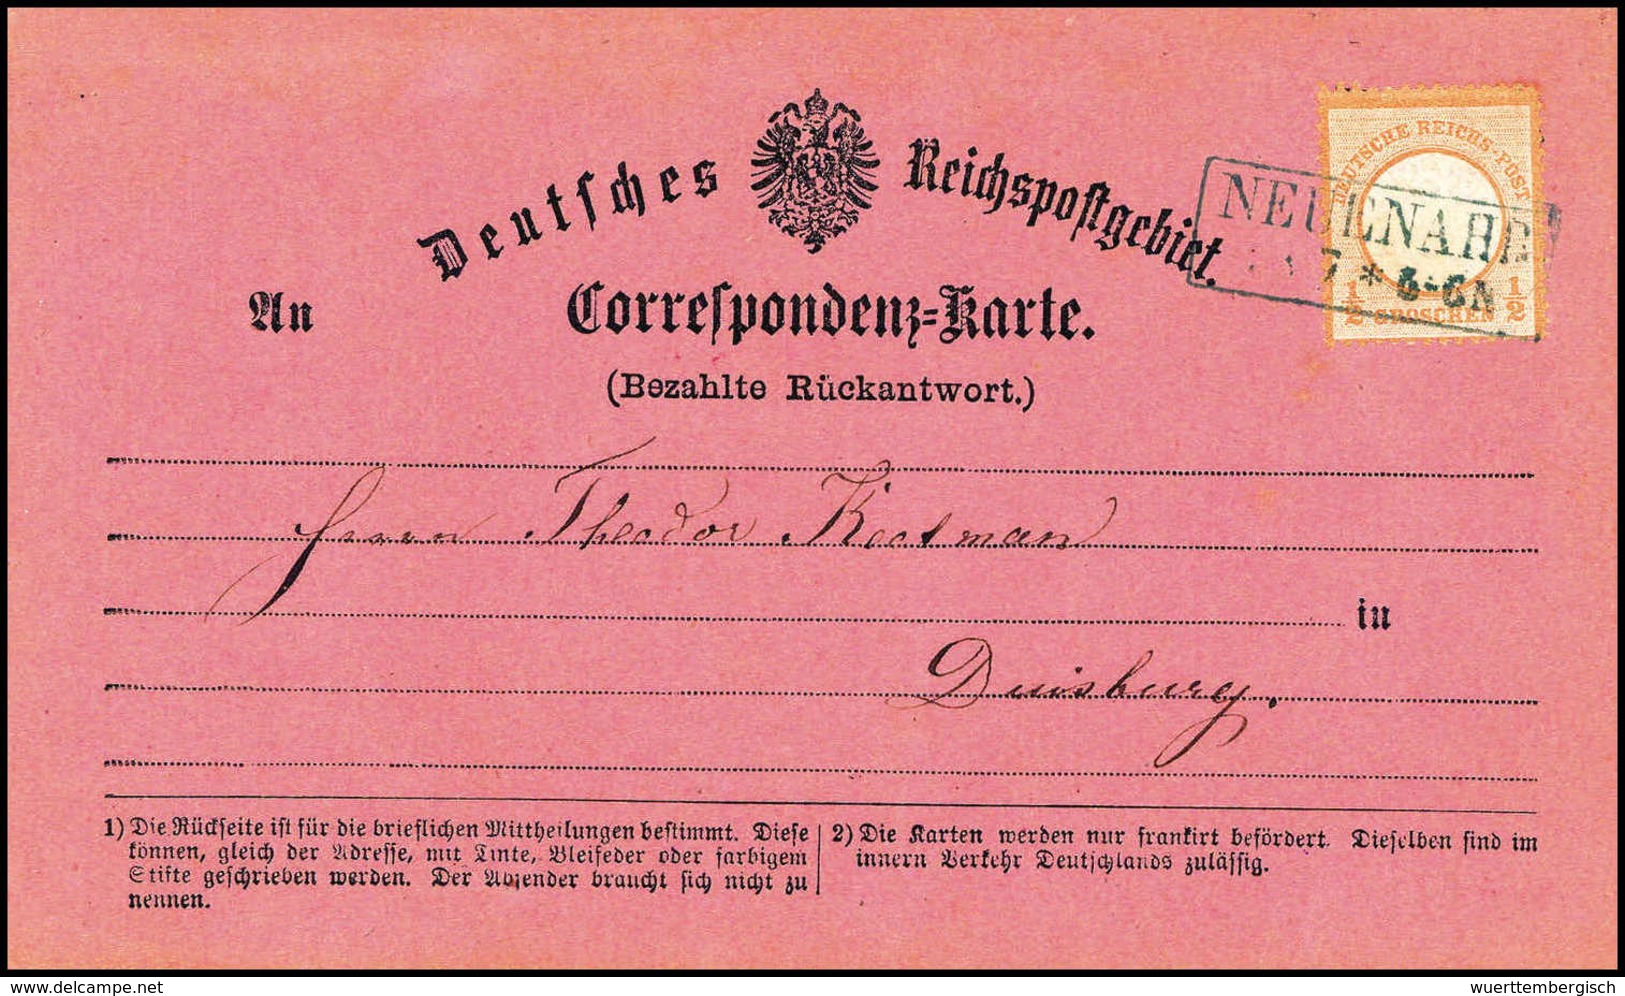 Deutsches Reichspostgebiet.
DEUTSCHE REICHS-POST
NEUENAHR
7 * 5-6N
1/2 GROSCHEN 1/2
An
Correspondenz-Karte.
(Bezahlte Rückantwort.)
Herrn Theodor
in
Duisburg.
1) Die Rückseite ist für die brieflichen Mittheilungen bestimmt. Diese
können, gleich der Adresse, mit Tinte, Bleifeder oder farbigem
Stifte geschrieben werden. Der Absender braucht sich nicht zu
nennen.
2) Die Karten werden nur frankirt befördert. Dieselben sind im
innern Verkehr Deutschlands zulässig.
www.delcampe.net
wuerttembergisch